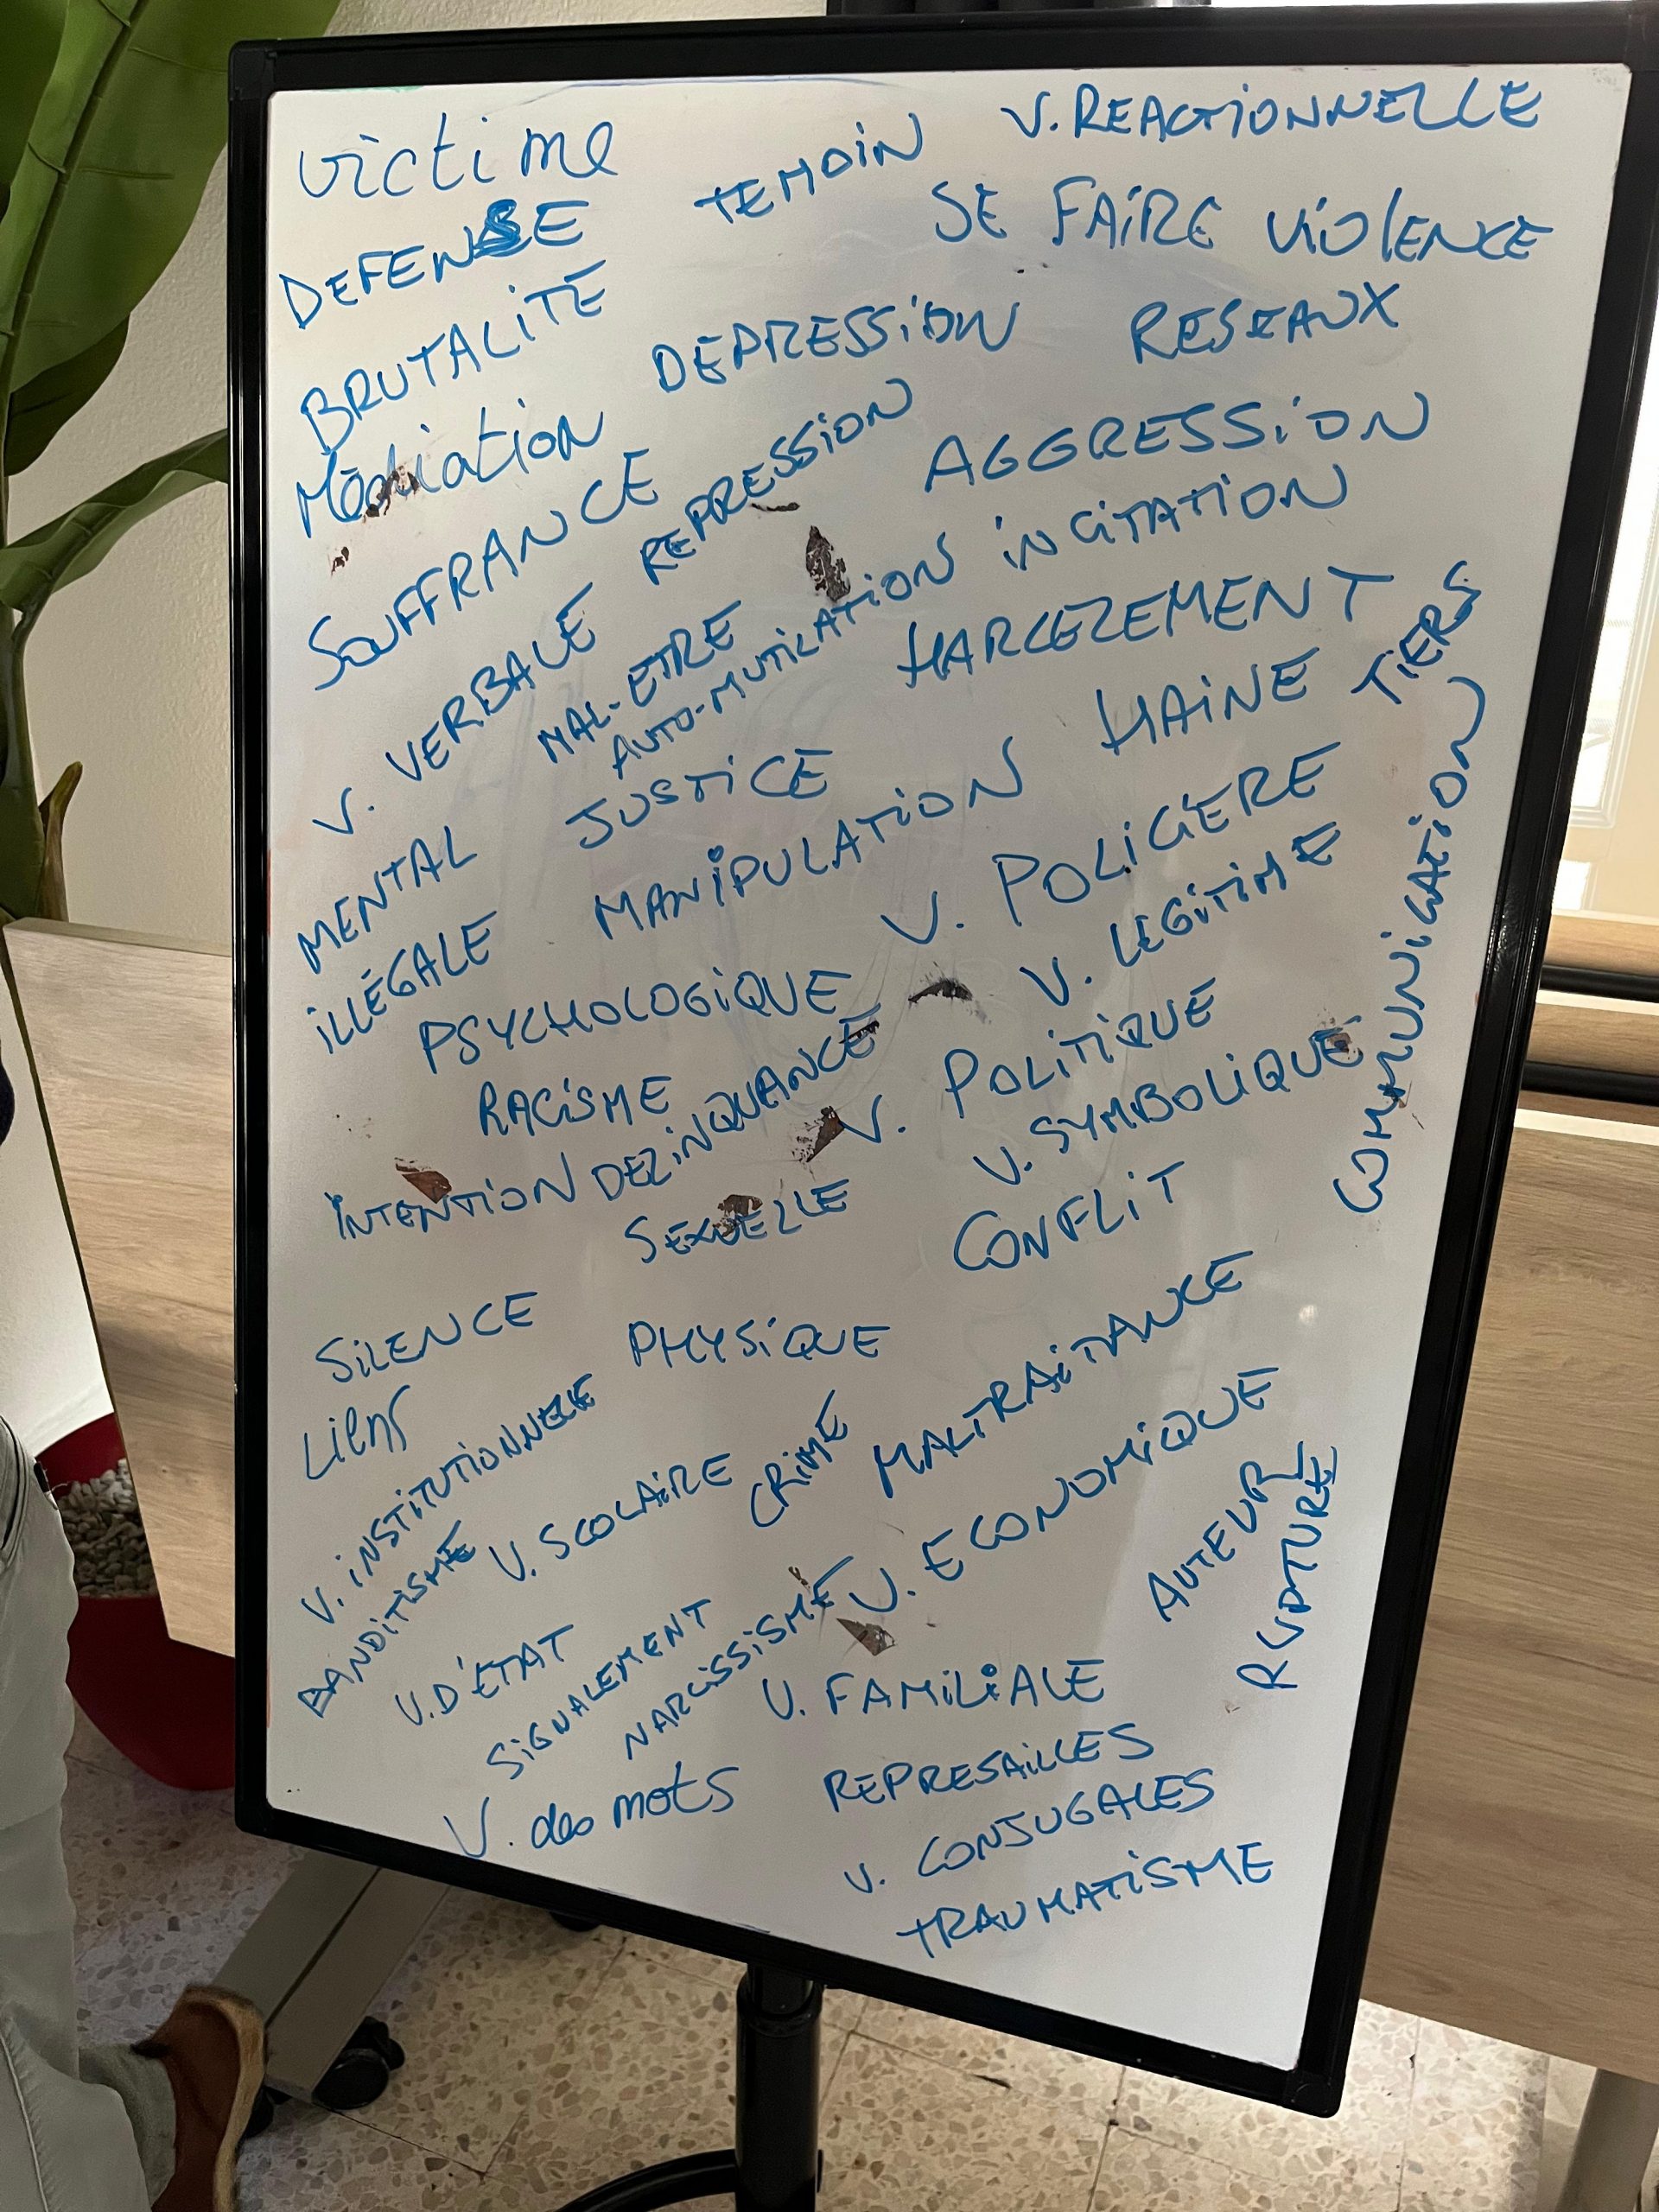 victime
TEMOIN
V. REACTIONNELLE
DEFENSE
SE FAIRE VIOLENCE
BRUTALITE
DEPRESSION
RESEAUX
Médiation
REPRESSION
AGGRESSION
SOUFFRANCE
INCITATION
V. VERBALE
MAL-ETRE
AUTO-MUTILATION
HARCELEMENT
TIERS
MENTAL
JUSTICE
HAINE
ILLÉGALE
MANIPULATION
V. POLICIERE
COMMUNICATION
PSYCHOLOGIQUE
V. LEGITIME
RACISME
V. POLITIQUE
INTENTION
DELINQUANCE
V. SYMBOLIQUE
SEXUELLE
CONFLIT
SILENCE
PHYSIQUE
MALTRAITANCE
Liens
V. INSTITUTIONNELLE
CRIME
V. SCOLAIRE
V. ECONOMIQUE
BANDITISME
AUTEUR
RUPTURE
V. D'ÉTAT
SIGNALEMENT
NARCISSISME
V. FAMILIALE
V. des mots
REPRESAILLES
V. CONJUGALES
TRAUMATISME